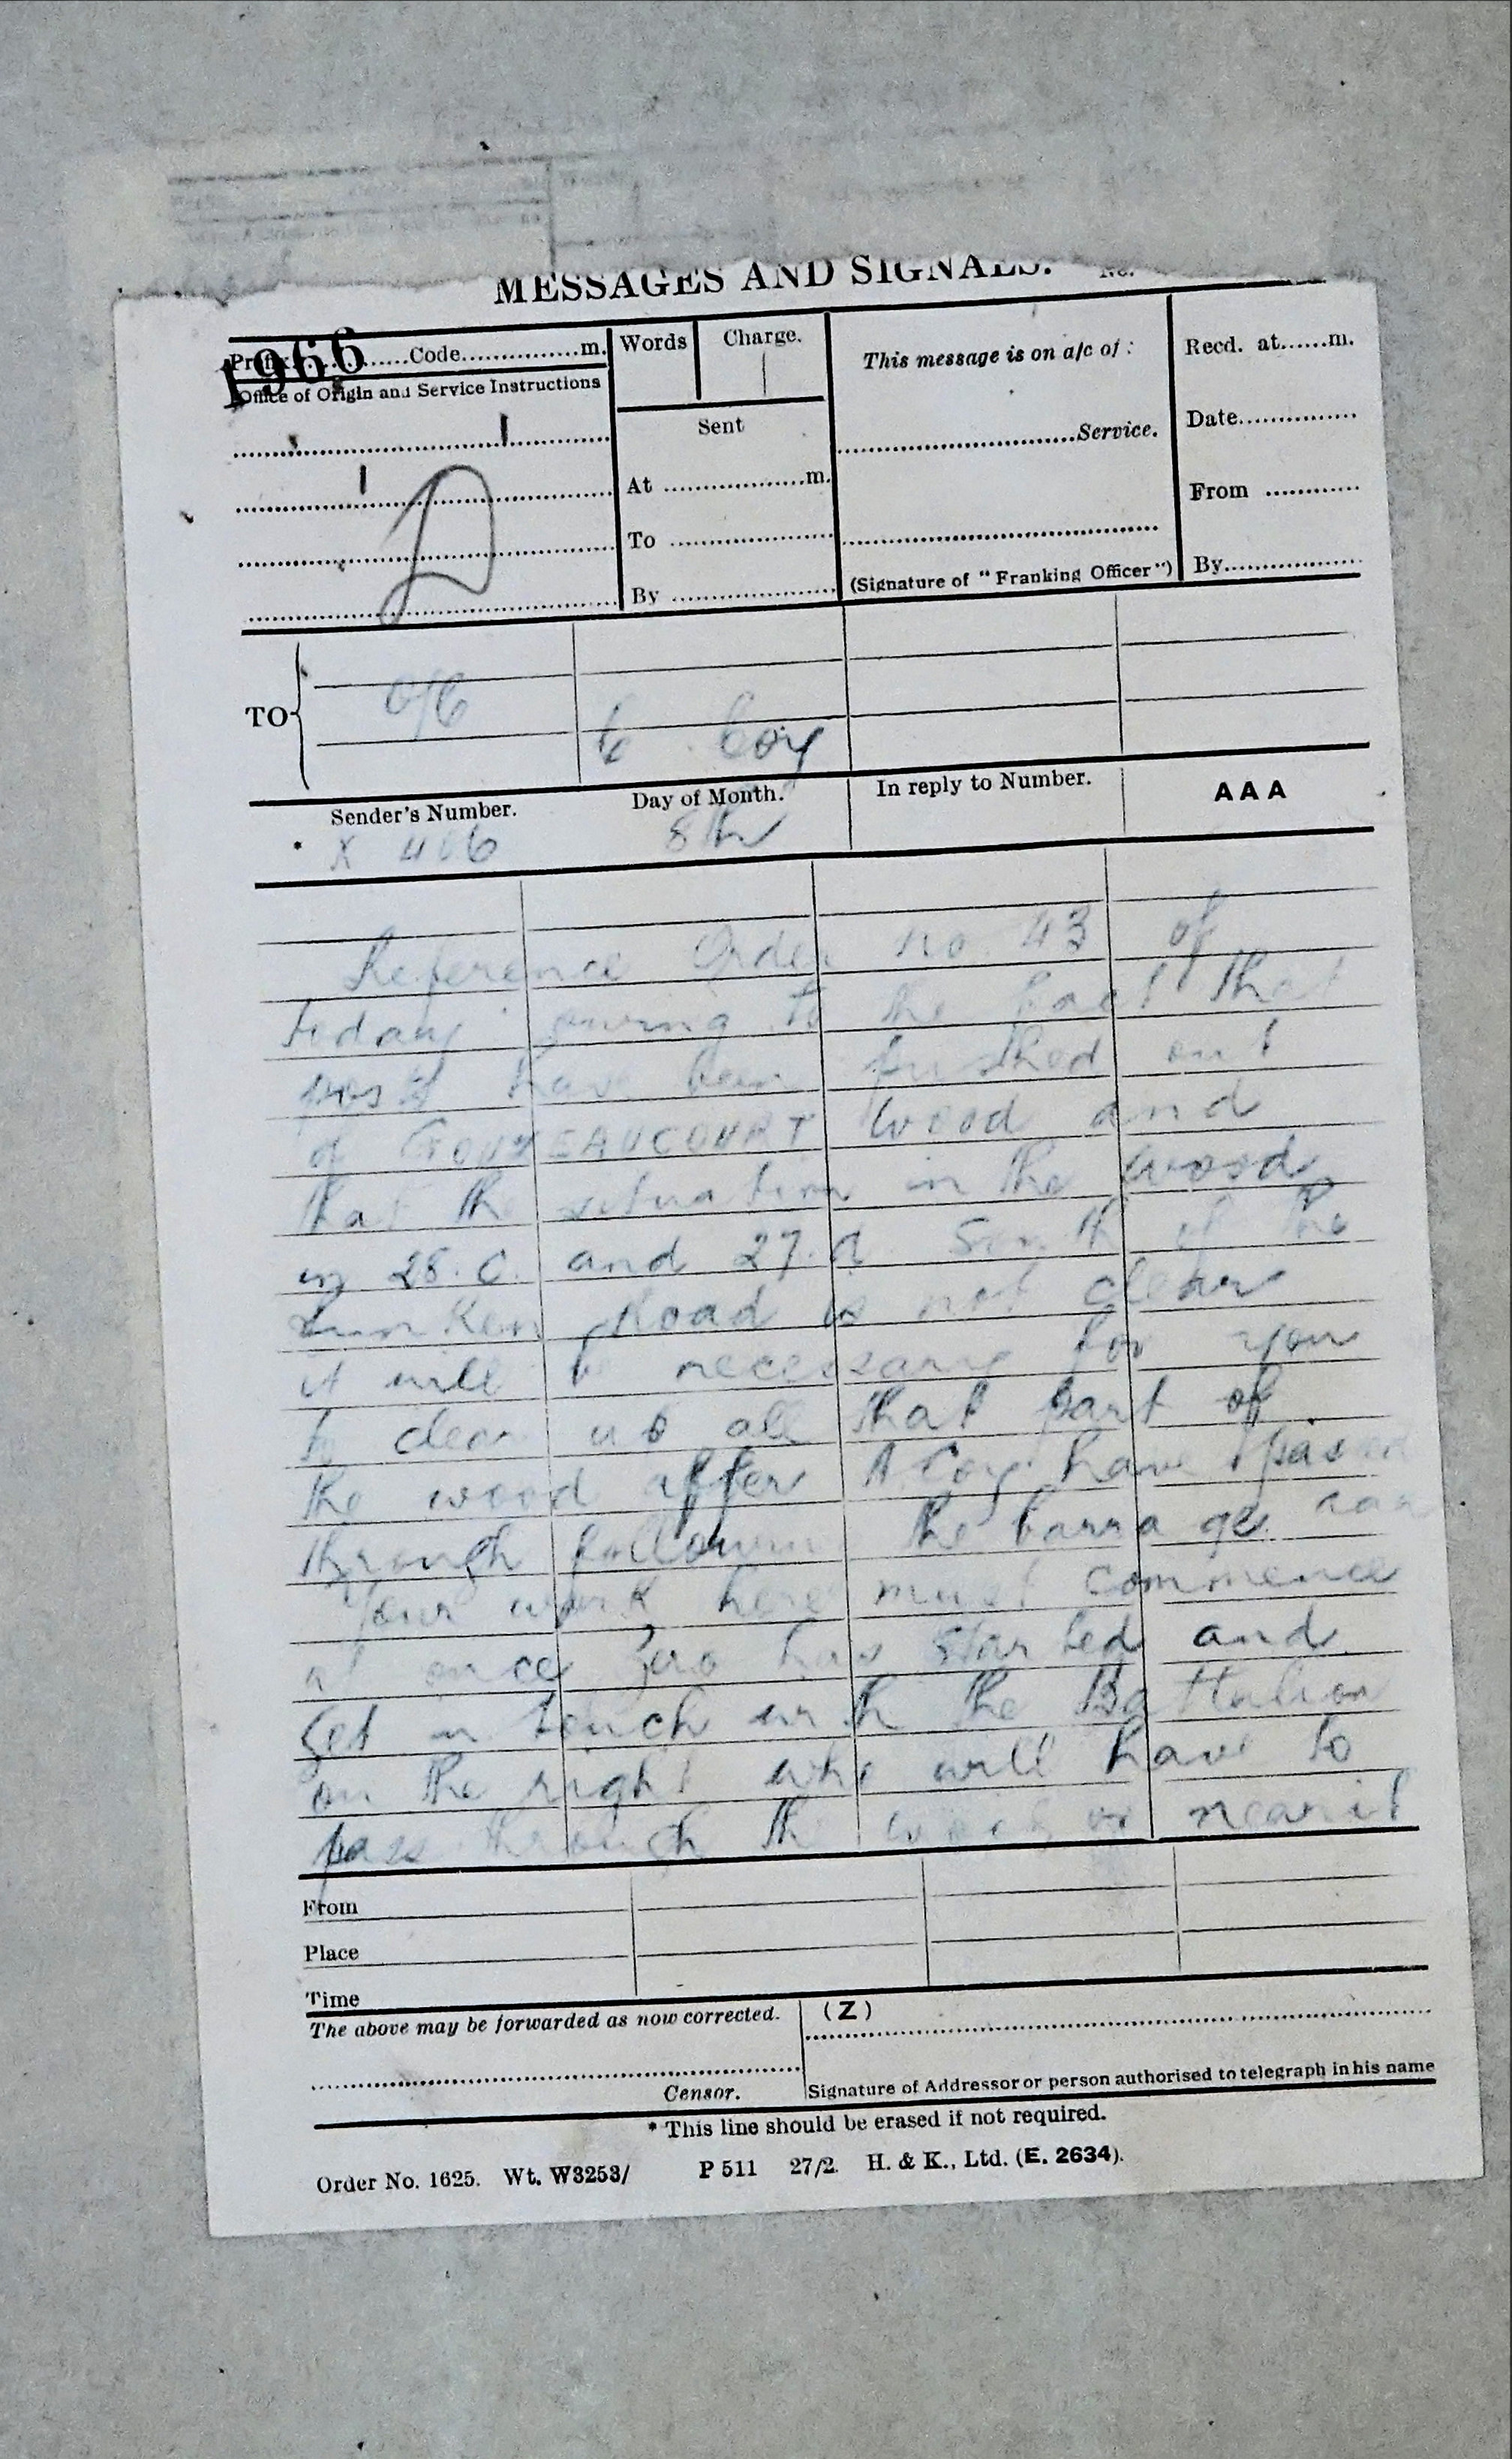 MESSAGES AND SIGNALS. No.
1966
Prefix..........Code...............m. Words Charge. This message is on a/c of : Recd. at......m.
Office of Origin and Service Instructions
Sent
..............................Service. Date...............
At ..................m.
From ............
To .....................
By .................... (Signature of "Franking Officer") By.................
TO O/C C Coy
Sender's Number. Day of Month. In reply to Number. AAA
* X 406 8th
Reference Order no. 43 of
today owing to the fact that
posts have been pushed out
of GOUZEAUCOURT Wood and
that the situation in the wood
in 28.C. and 27.d South of the
Sunken Road is not clear
it will be necessary for you
to clear up all that part of
the wood after A Coy have passed
through following the barrage. aaa
Your work here must commence
at once Zero has started and
get in touch with the Battalion
on the right who will have to
pass through the wood or near it
From
Place
Time
The above may be forwarded as now corrected. (Z)
Censor. Signature of Addressor or person authorised to telegraph in his name
* This line should be erased if not required.
Order No. 1625. Wt. W3253/ P 511 27/2. H. & K., Ltd. (E. 2634).